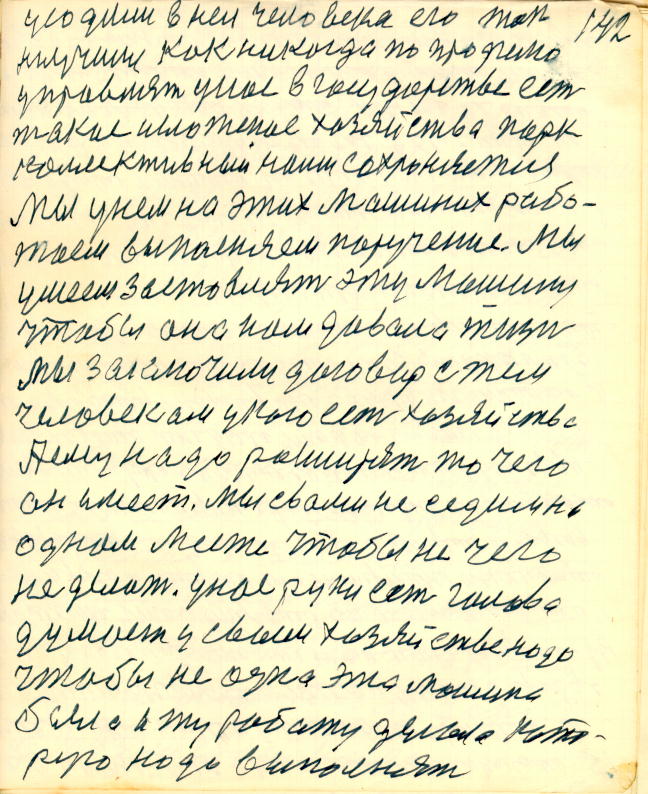 142
усодили в неи человека его
нлучши как никогда по
управлят унас в государстве ест
такое изложеное хозяйства парк
коллективный наши сохроняетися
Мы унем на этих машинах рабо-
таем выполняем поручение. Мы
умеем заставлят эту машину
чтобы она нам давала
мы заключили договор с тем
человекам укого сет хозяйства
Аему надо роширят то чего
он имеет. мы свами не седим на
одном месте чтобы не чего
не делат. унас руки сет голова
думает у своем хозяйстве надо
чтобы не одна эта машина
была и ту работу делала кото-
рую надо выполнят